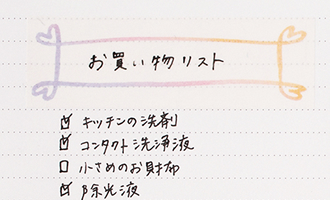 お買い物リスト
☑ キッチンの洗剤
☑ コンタクト洗浄液
☐ 小さめのお財布
☑ 除光液